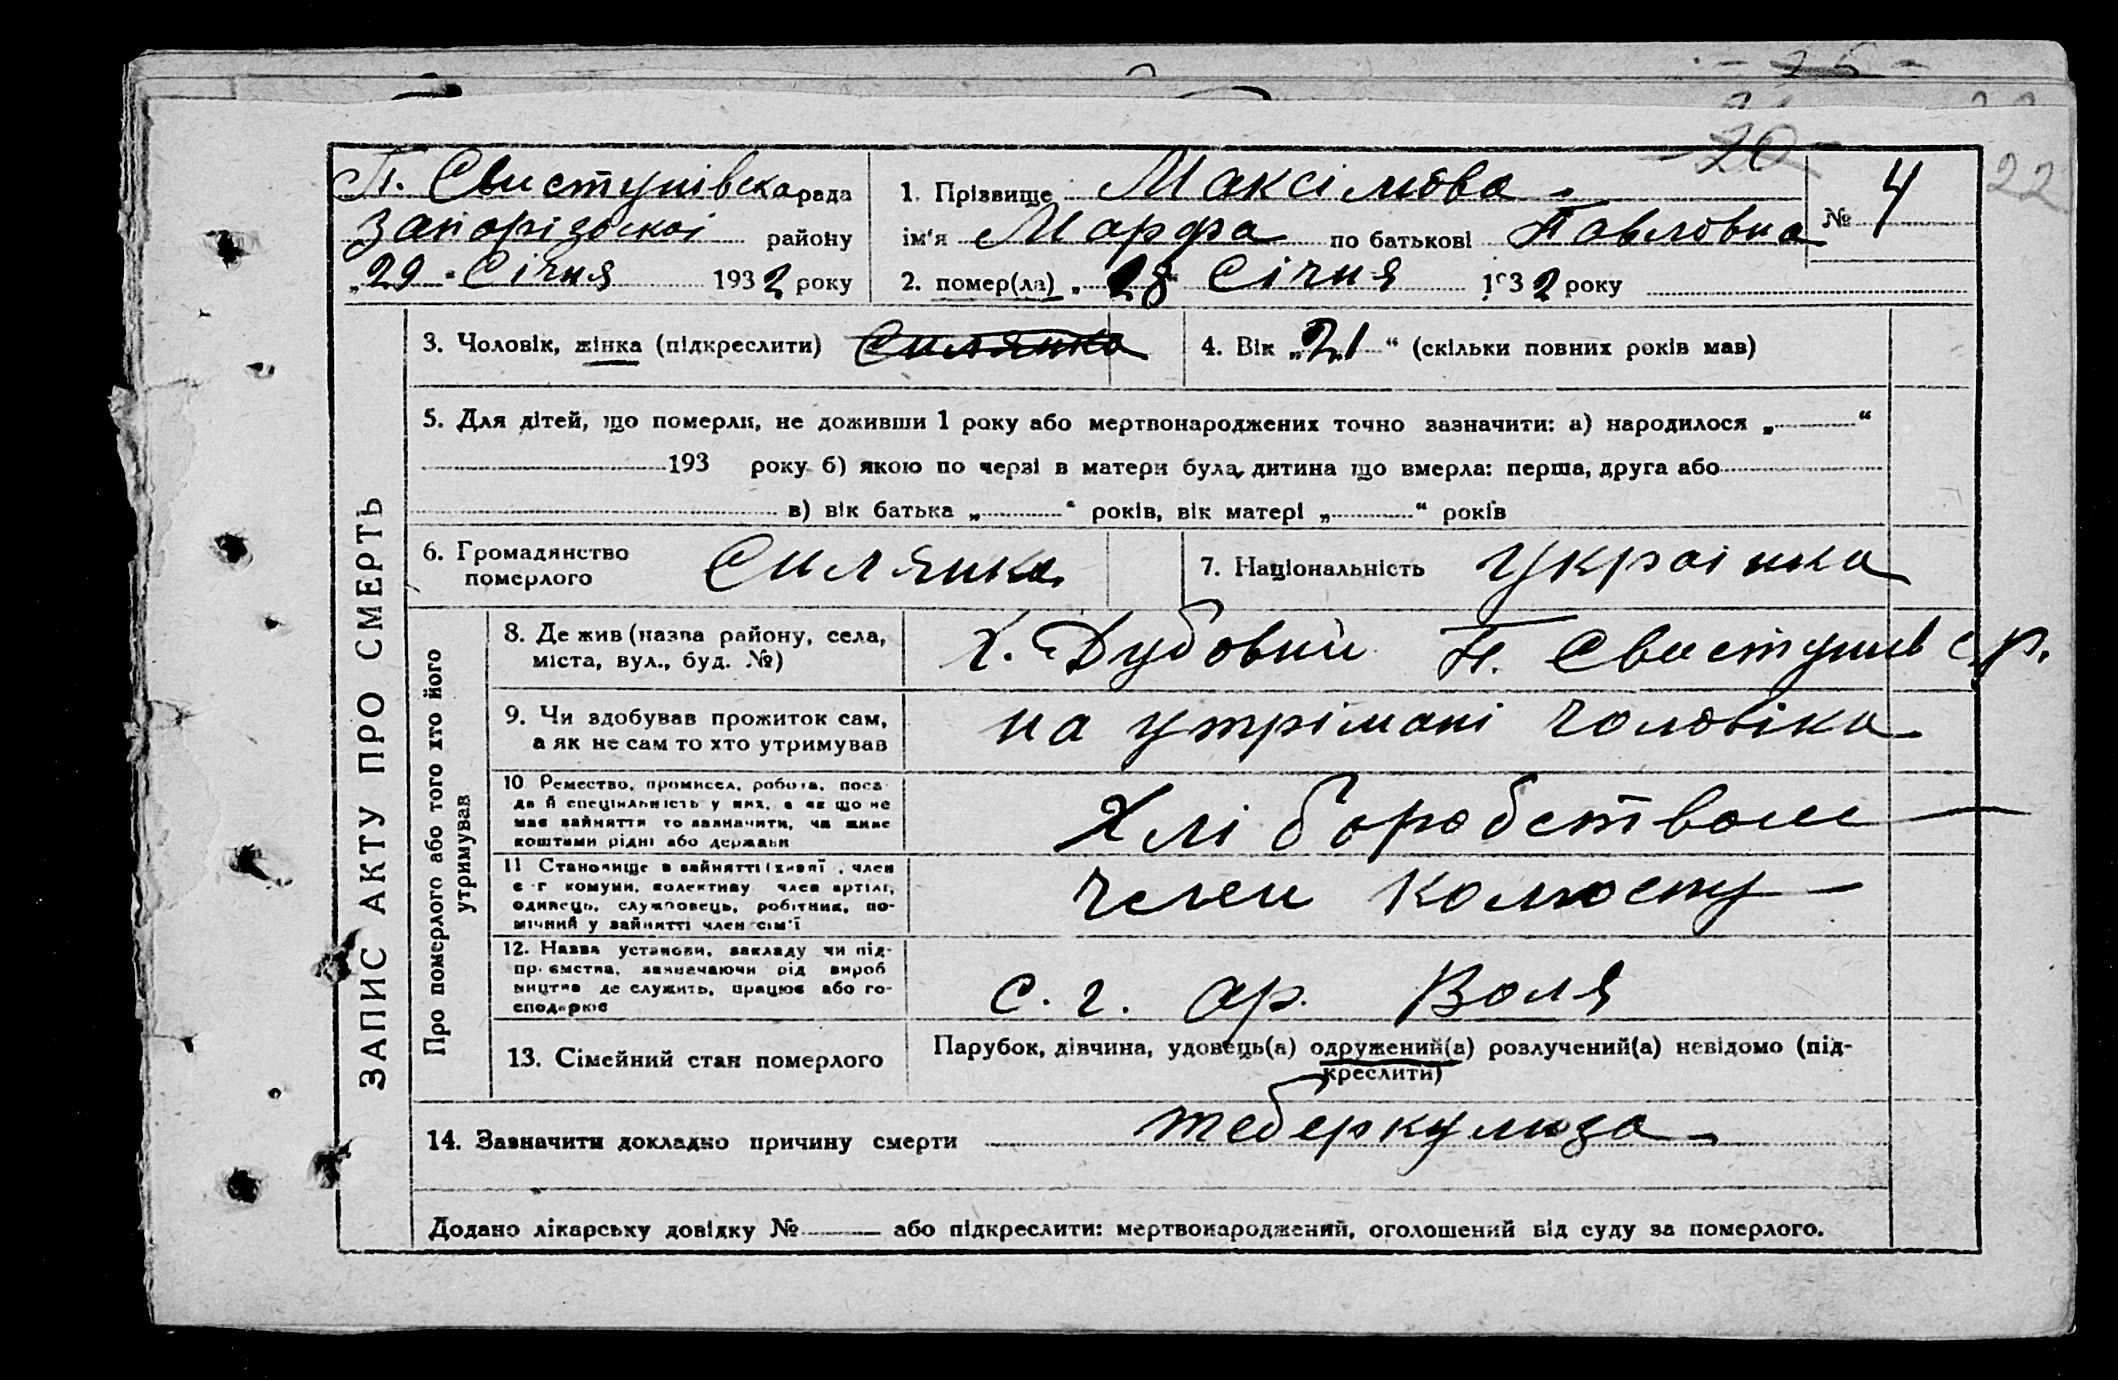 20
22
П. Свистунівска рада
Запорізької району
„29" Січня 1932 року
1. Прізвище Максімова
ім'я Марфа по батькові Павловна
№ 4
2. помер(ла) „28" Січня 1932 року
ЗАПИС АКТУ ПРО СМЕРТЬ
3. Чоловік, жінка (підкреслити) Силянка
4. Вік „21" (скільки повних років мав)
5. Для дітей, що померли, не доживши 1 року або мертвонароджених точно зазначити: а) народилося „ “
193 року б) якою по черзі в матери була дитина що вмерла: перша, друга або
в) вік батька „ “ років, вік матері „ “ років
6. Громадянство
померлого
Силянка
7. Національність Украінка
Про померлого або того хто його
утримував
8. Де жив (назва району, села,
міста, вул., буд. №)
Х. Дубовий П. Свистунів с.р.
9. Чи здобував прожиток сам,
а як не сам то хто утримував
на утрімані чоловіка
10 Ремество, промисел, робота, поса
да й спеціяльність у них, а як що не
має зайняття то зазначити, чи живе
коштами рідні або держави
Хліборобством
11 Становище в зайнятті (хазяї, член
с-г комуни, колективу член артілі,
одинець, службовець, робітник, по-
мічний у зайнятті член сім'ї
член колхосту
12. Назва установи, закладу чи під-
приємства, зазначаючи рід вироб
ництва де служить, працює або го-
сподарює
с. г. ар. Воля
13. Сімейний стан померлого
Парубок, дівчина, удовець(а) одружений(а) розлучений(а) невідомо (під-
креслити)
14. Зазначити докладно причину смерти теберкульоза
Додано лікарську довідку № або підкреслити: мертвонароджений, оголошений від суду за померлого.